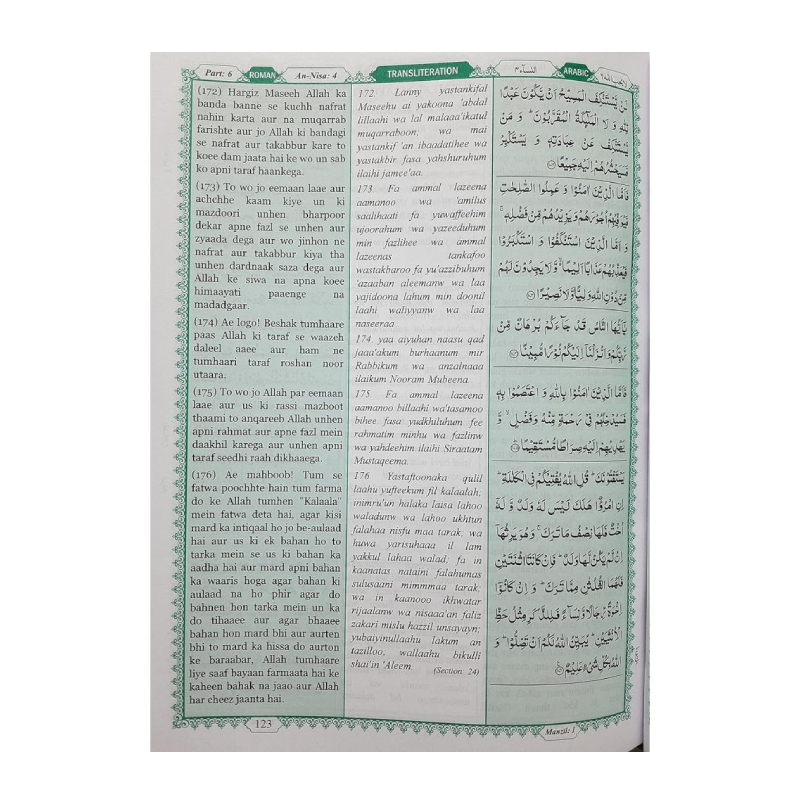 Part: 6
ROMAN
An-Nisa: 4
TRANSLITERATION
النسآء ٤
ARABIC
لا يحب الله ٦
(172) Hargiz Maseeh Allah ka
banda banne se kuchh nafrat
nahin karta aur na muqarrab
farishte aur jo Allah ki bandagi
se nafrat aur takabbur kare to
koee dam jaata hai ke wo un sab
ko apni taraf haankega.
(173) To wo jo eemaan laae aur
achchhe kaam kiye un ki
mazdoori unhen bharpoor
dekar apne fazl se unhen aur
zyaada dega aur wo jinhon ne
nafrat aur takabbur kiya tha
unhen dardnaak saza dega aur
Allah ke siwa na apna koee
himaayati paaenge na
madadgaar.
(174) Ae logo! Beshak tumhaare
paas Allah ki taraf se waazeh
daleel aaee aur ham ne
tumhaari taraf roshan noor
utaara.
(175) To wo jo Allah par eemaan
laae aur us ki rassi mazboot
thaami to anqareeb Allah unhen
apni rahmat aur apne fazl mein
daakhil karega aur unhen apni
taraf seedhi raah dikhaaega.
(176) Ae mahboob! Tum se
fatwa poochhte hain tum farma
do ke Allah tumhen "Kalaala"
mein fatwa deta hai, agar kisi
mard ka intiqaal ho jo be-aulaad
hai aur us ki ek bahan ho to
tarka mein se us ki bahan ka
aadha hai aur mard apni bahan
ka waaris hoga agar bahan ki
aulaad na ho phir agar do
bahnen hon tarka mein un ka
do tihaaee aur agar bhaaee
bahan hon mard bhi aur aurten
bhi to mard ka hissa do aurton
ke baraabar, Allah tumhaare
liye saaf bayaan farmaata hai ke
kaheen bahak na jaao aur Allah
har cheez jaanta hai.
172. Lanny yastankifal
Maseehu ai yakoona 'abdal
lillaahi wa lal malaaa'ikatul
muqarraboon; wa mai
yastankif 'an ibaadatihee wa
yastakbir fasa yahshuruhum
ilaihi jamee'aa.
173. Fa ammal lazeena
aamanoo wa 'amilus
saalihaati fa yuwaffeehim
ujoorahum wa yazeeduhum
min fazlihee wa ammal
lazeenas tankafoo
wastakbaroo fa yu'azzibuhum
'azaaban aleemanw wa laa
yajidoona lahum min doonil
laahi waliyyanw wa laa
naseeraa
174. yaa aiyuhan naasu qad
jaaa'akum burhaanum mir
Rabbikum wa anzalnaaa
ilaikum Nooram Mubeena.
175. Fa ammal lazeena
aamanoo billaahi wa'tasamoo
bihee fasa yudkhiluhum fee
rahmatim minhu wa fazlinw
wa yahdeehim ilaihi Siraatam
Mustaqeema.
176 Yastaftoonaka qulil
laahu yufteekum fil kalaalah;
inimru'un halaka laisa lahoo
waladunw wa lahoo ukhtun
falahaa nisfu maa tarak; wa
huwa yarisuhaaa il lam
yakkul lahaa walad; fa in
kaanatas nataini falahumas
sulusaani mimmmaa tarak;
wa in kaanooo ikhwatar
rijaalanw wa nisaaa'an faliz
zakari mislu hazzil unsayayn;
yubaiyinullaahu lakum an
tazilloo; wallaahu bikulli
shai'in 'Aleem.
(Section: 24)
لَنْ يَّسْتَنْكِفَ الْمَسِيْحُ اَنْ يَّكُوْنَ عَبْدًا
لِّلّٰهِ وَ لَا الْمَلٰٓىِٕكَةُ الْمُقَرَّبُوْنَ ؕ وَ مَنْ
يَّسْتَنْكِفْ عَنْ عِبَادَتِهٖ وَ يَسْتَكْبِرْ
فَسَيَحْشُرُهُمْ اِلَيْهِ جَمِيْعًا
فَاَمَّا الَّذِيْنَ اٰمَنُوْا وَ عَمِلُوا الصّٰلِحٰتِ
فَيُوَفِّيْهِمْ اُجُوْرَهُمْ وَ يَزِيْدُهُمْ مِّنْ فَضْلِهٖ ۚ
وَ اَمَّا الَّذِيْنَ اسْتَنْكَفُوْا وَ اسْتَكْبَرُوْا
فَيُعَذِّبُهُمْ عَذَابًا اَلِيْمًا ۙ وَّ لَا يَجِدُوْنَ لَهُمْ
مِّنْ دُوْنِ اللّٰهِ وَلِيًّا وَّ لَا نَصِيْرًا
يٰۤاَيُّهَا النَّاسُ قَدْ جَآءَكُمْ بُرْهَانٌ مِّنْ
رَّبِّكُمْ وَ اَنْزَلْنَاۤ اِلَيْكُمْ نُوْرًا مُّبِيْنًا
فَاَمَّا الَّذِيْنَ اٰمَنُوْا بِاللّٰهِ وَ اعْتَصَمُوْا بِهٖ
فَسَيُدْخِلُهُمْ فِيْ رَحْمَةٍ مِّنْهُ وَ فَضْلٍ ۙ وَّ
يَهْدِيْهِمْ اِلَيْهِ صِرَاطًا مُّسْتَقِيْمًا
يَسْتَفْتُوْنَكَ ؕ قُلِ اللّٰهُ يُفْتِيْكُمْ فِي الْكَلٰلَةِ ؕ
اِنِ امْرُؤٌا هَلَكَ لَيْسَ لَهٗ وَلَدٌ وَّ لَهٗۤ
اُخْتٌ فَلَهَا نِصْفُ مَا تَرَكَ ۚ وَ هُوَ يَرِثُهَاۤ
اِنْ لَّمْ يَكُنْ لَّهَا وَلَدٌ ؕ فَاِنْ كَانَتَا اثْنَتَيْنِ
فَلَهُمَا الثُّلُثٰنِ مِمَّا تَرَكَ ؕ وَ اِنْ كَانُوْۤا
اِخْوَةً رِّجَالًا وَّ نِسَآءً فَلِلذَّكَرِ مِثْلُ حَظِّ
الْاُنْثَيَيْنِ ؕ يُبَيِّنُ اللّٰهُ لَكُمْ اَنْ تَضِلُّوْا ؕ وَ
اللّٰهُ بِكُلِّ شَيْءٍ عَلِيْمٌ
123
Manzil: 1